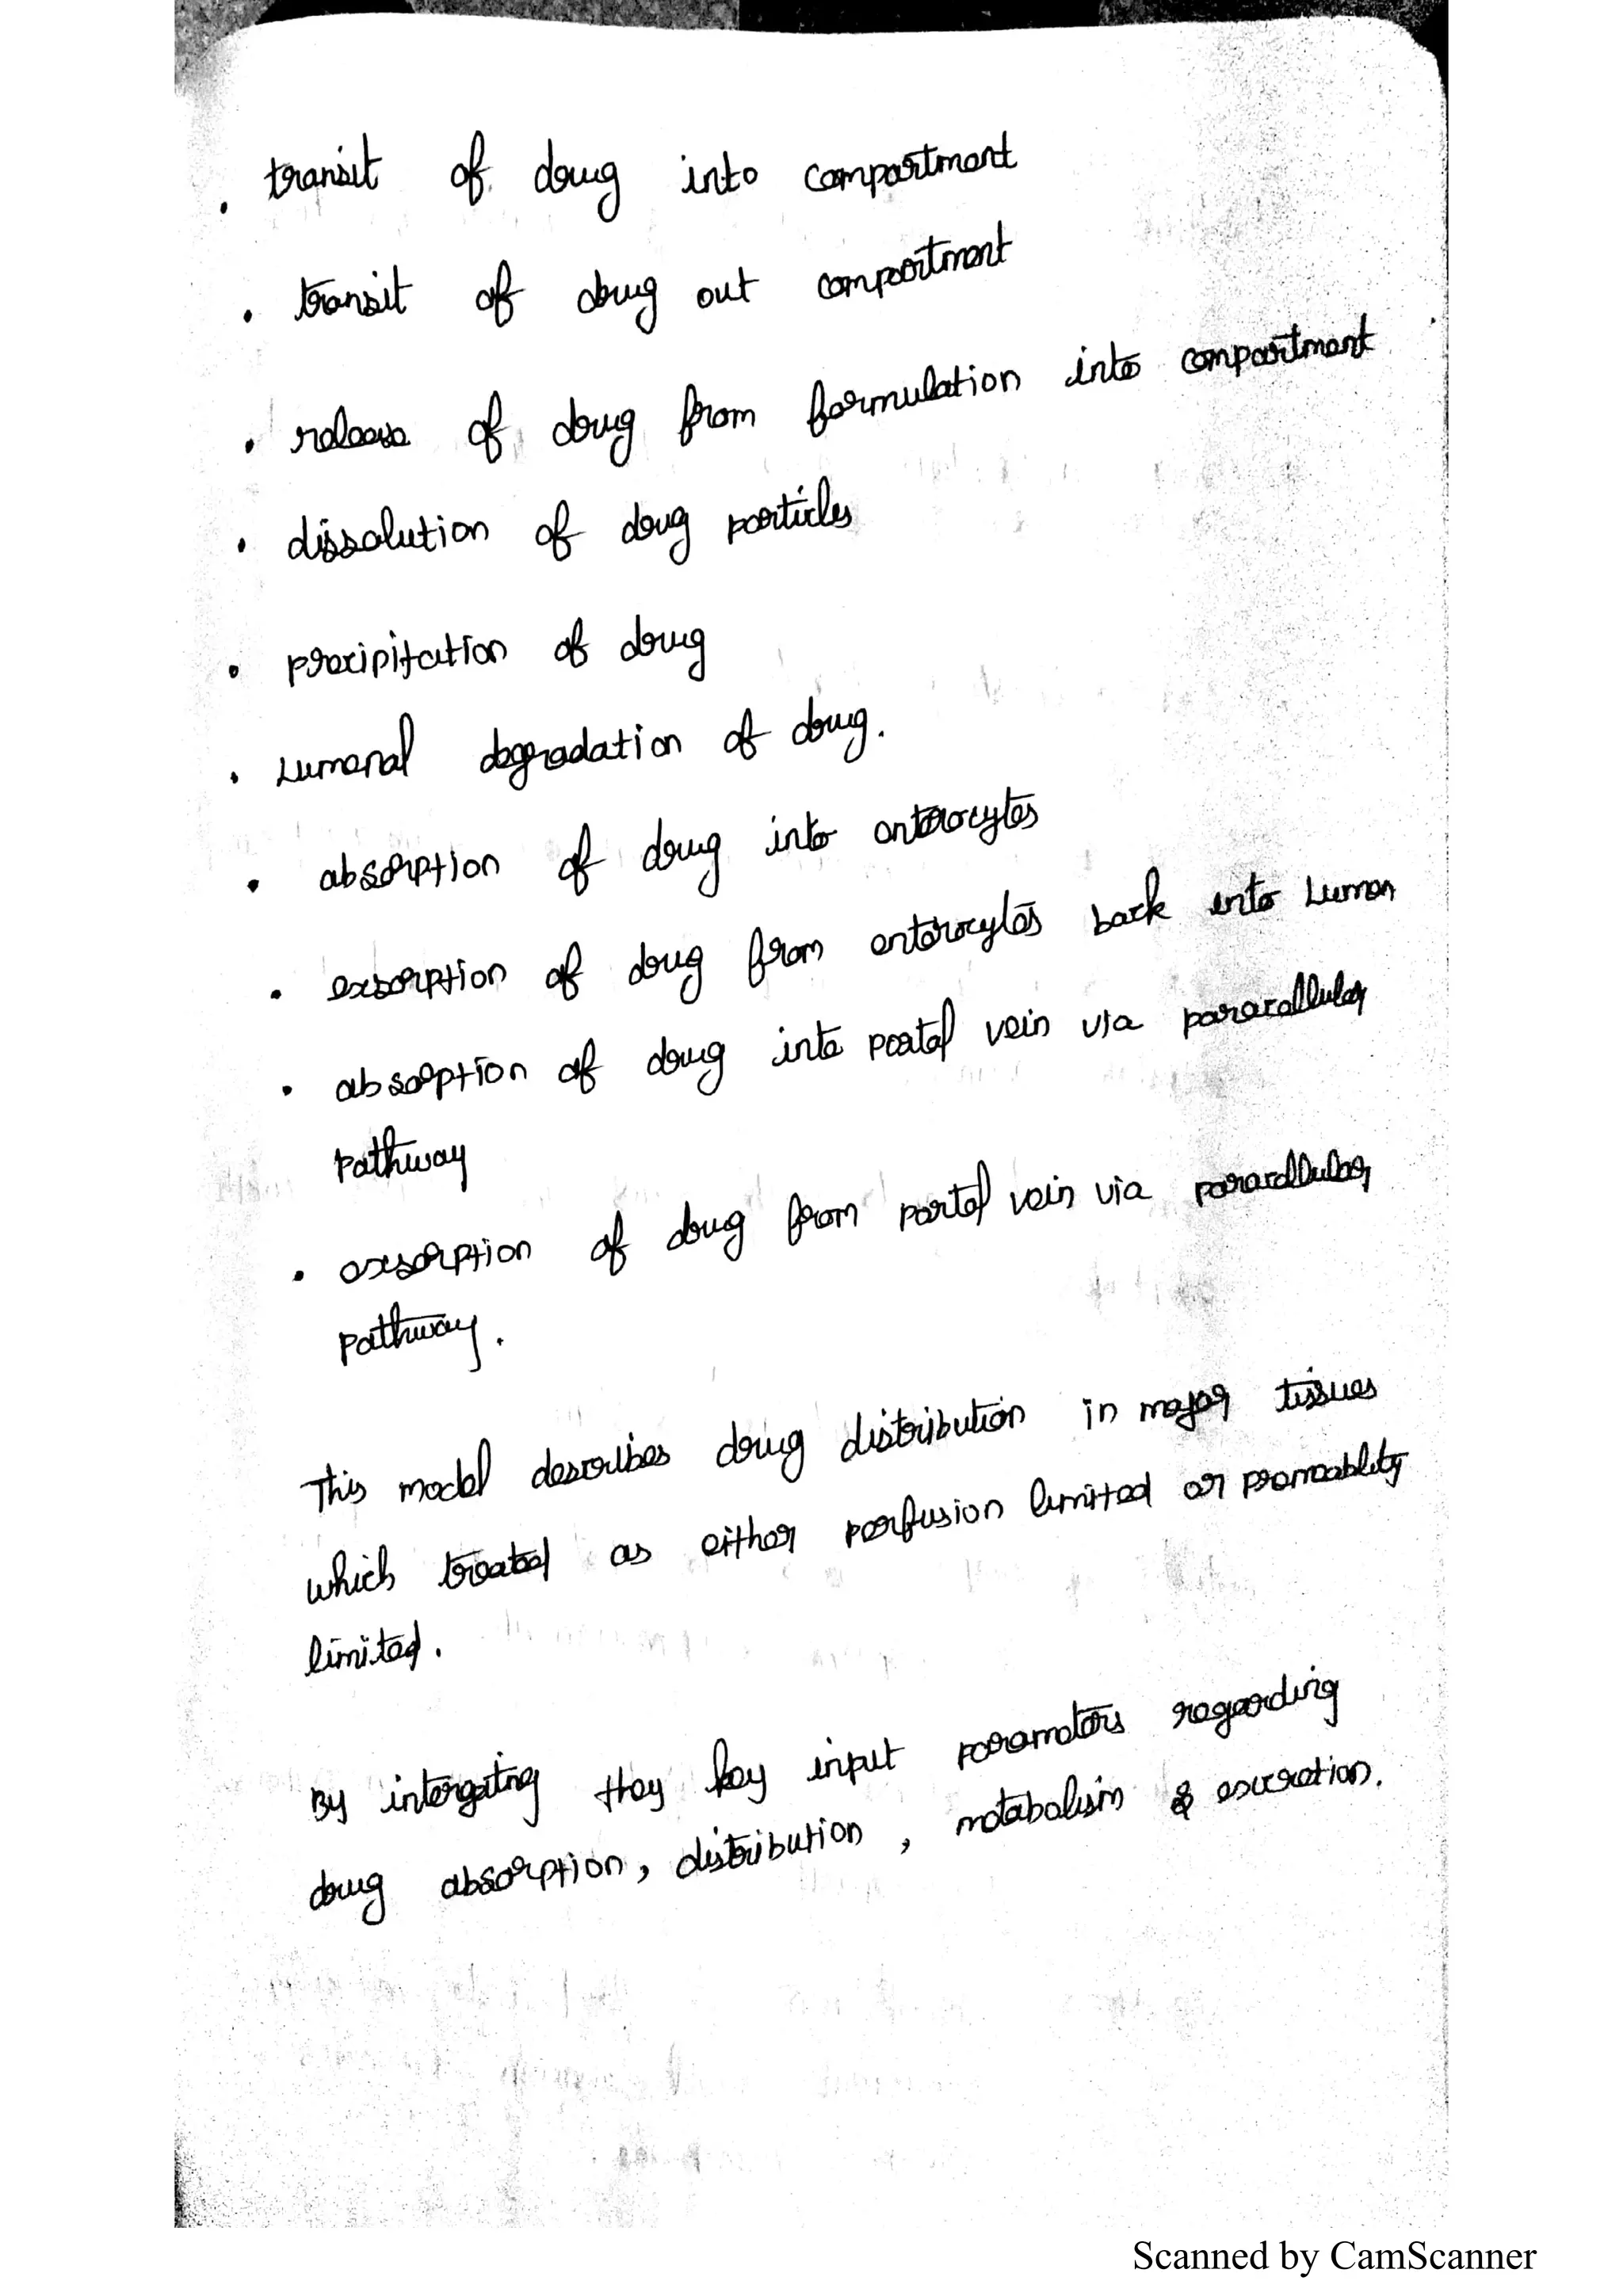 . transit of drug into compartment
. transit of drug out compartment
. release of drug from formulation into compartment
. dissolution of drug particles
. precipitation of drug
. Lumenal degradation of drug.
. absorption of drug into enterocytes
. exsorption of drug from enterocytes back into Lumen
. absorption of drug into portal vein via paracellular
Pathway
. exsorption of drug from portal vein via paracellular
Pathway.
This model describes drug distribution in major tissues
which treated as either perfusion limited or permeablity
limited.
By intergating they key input parameters regarding
drug absorption, distribution, metabolism & excretion.
Scanned by CamScanner